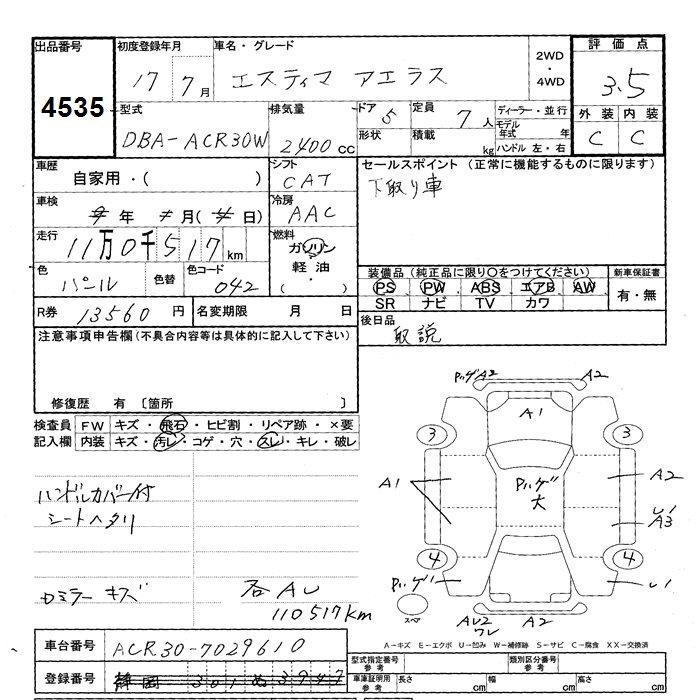 出品番号
4535
初度登録年月
17 7月
車名・グレード
エスティマ アエラス
2WD
・
4WD
評価点
3.5
外装 内装
C C
型式
DBA-ACR30W
排気量
2400cc
ドア 5
形状
定員 7人
積載 kg
ディーラー・並行
モデル年式 年
ハンドル 左・右
車歴
自家用・( )
シフト
CAT
セールスポイント (正常に機能するものに限ります)
下取り車
車検
年 月( 日)
冷房
AAC
走行
11万0千517km
燃料
ガソリン
軽油
・( )
色
パール
色替
色コード
042
装備品 (純正品に限り○をつけてください)
PS PW ABS エアB AW
SR ナビ TV カワ
新車保証書
有・無
R券 13560円
名変期限 月 日
後日品
取説
注意事項申告欄(不具合内容等は具体的に記入して下さい)
修復歴 有 [箇所 ]
検査員記入欄
FW キズ・飛石・ヒビ割・リペア跡・×要
内装 キズ・汚レ・コゲ・穴・スレ・キレ・破レ
ハンドルカバー付
シートヘタリ
ロミラーキズ
各AU
110517km
Pハゲ A2 A2
A1
3 3
A1 Pハゲ 大 A2
A3
4 4
Pハゲ
スペア
AU2
ワレ
A2
A-キズ E-エクボ U-凹み W-補修跡 S-サビ C-腐食 XX-交換済
車台番号
ACR30-7029610
登録番号
静岡 301 ぬ 3947
型式指定番号
参考
類別区分番号
参考
車庫証明用
参考
長さ cm
幅 cm
高さ cm